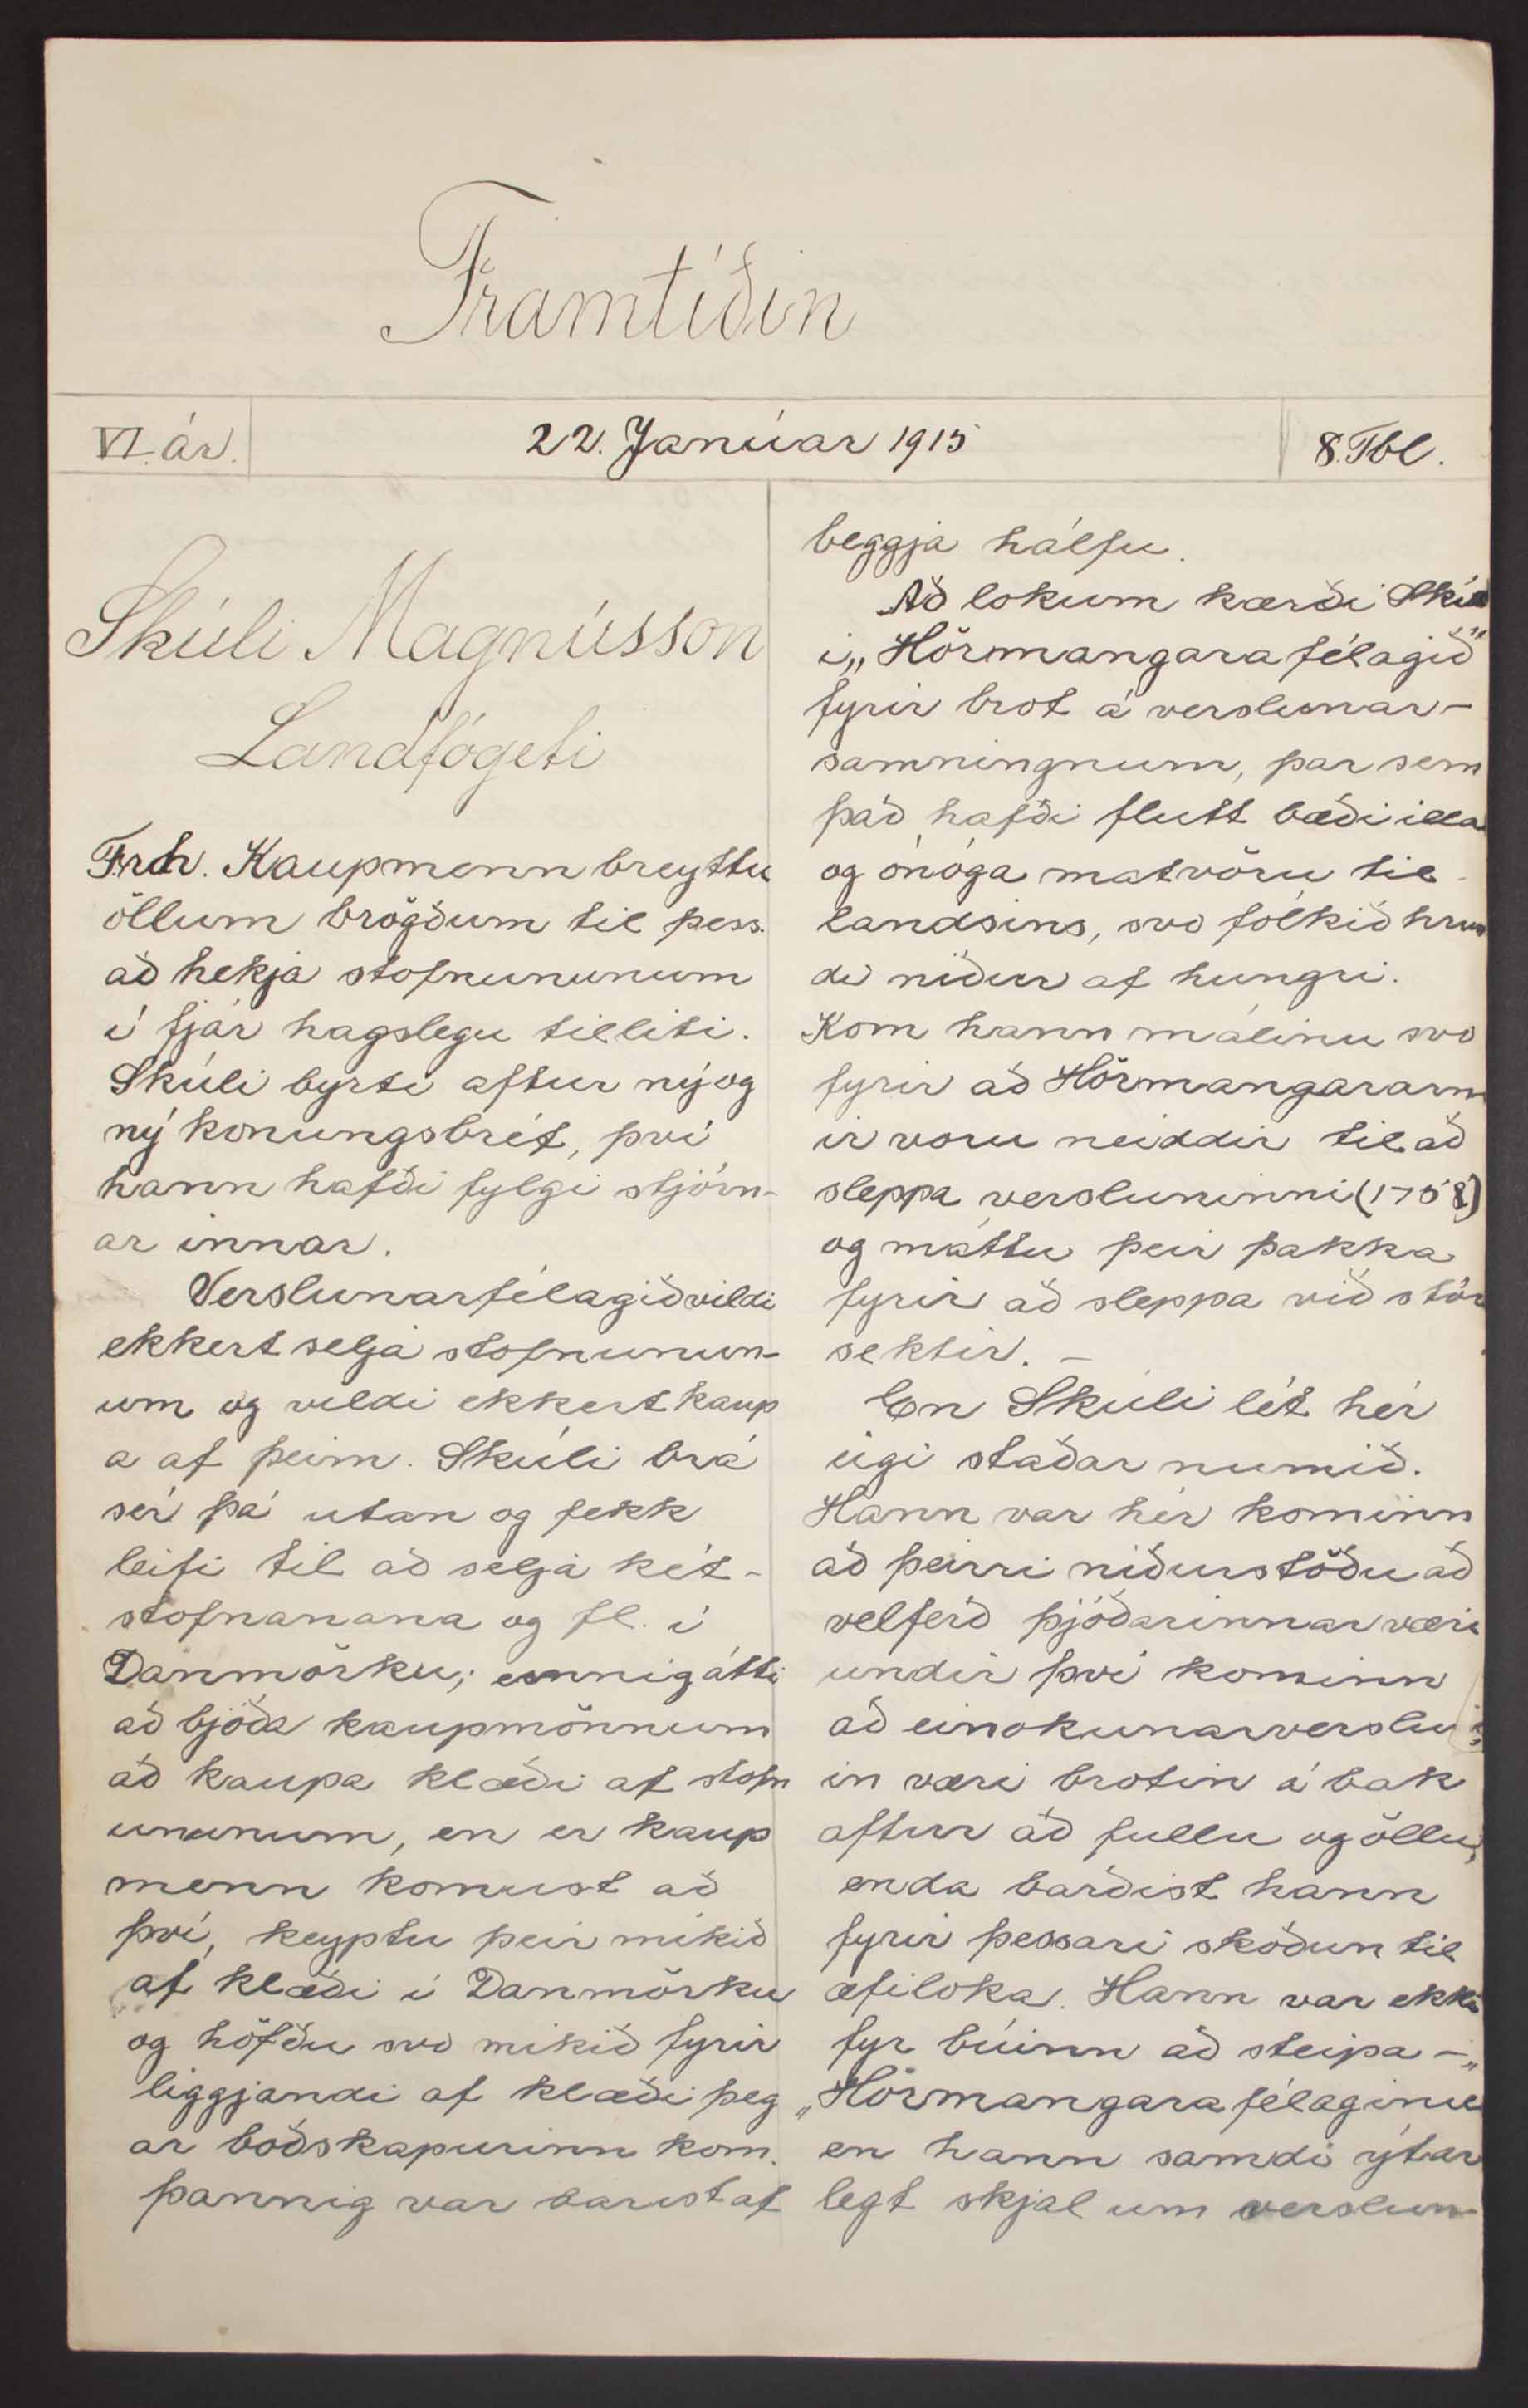 Framtíðin
VI. ár.
22. Janúar 1915
8. Tbl.
Skúli Magnússon
Landfógeti
Frh. Kaupmenn breyttu
öllum brögðum til þess.
að hekja stofnununum
í fjár hagslegu tilliti.
Skúli byrti aftur ný og
ný konungsbréf, því
hann hafði fylgi stjórn-
ar innar.
Verslunarfélagið vildi
ekkert selja stofnunun-
um og vildi ekkert kaup
a af þeim. Skúli brá
sér þá utan og fekk
leifi til að selja két-
stofnanana og fl. í
Danmörku; ennig átti
að bjóða kaupmönnum
að kaupa klæði af stofn
ununum, en er kaup
menn komust að
því, keyptu þeir mikið
af klæði í Danmörku
og höfðu svo mikið fyrir
liggjandi af klæði þeg
ar boðskapurinn kom.
þannig var barist af
beggja hálfu.
Að lokum kærði Skúl
i „Hörmangarafélagið"
fyrir brot á verslunar-
samningnum, þar sem
það hafði flutt bæði illa
og ónóga matvöru til
landsins, svo fólkið hrun
di niður af hungri.
Kom hann málinu svo
fyrir að Hörmangararn
ir voru neiddir til að
sleppa versluninni (1758)
og máttu þeir þakka
fyrir að sleppa við stór
sektir. -
En Skúli lét hér
eigi staðar numið.
Hann var hér kominn
að þeirri niðurstöðu að
velferð þjóðarinnar væri
undir því kominn
að einokunarverslu
in væri brotin á bak
aftur að fullu og öllu,
enda barðist hann
fyrir þessari skoðun til
æfiloka. Hann var ekki
fyr búinn að steipa -"
„Hörmangarafélaginu
en hann samdi ýtar
legt skjal um verslun-